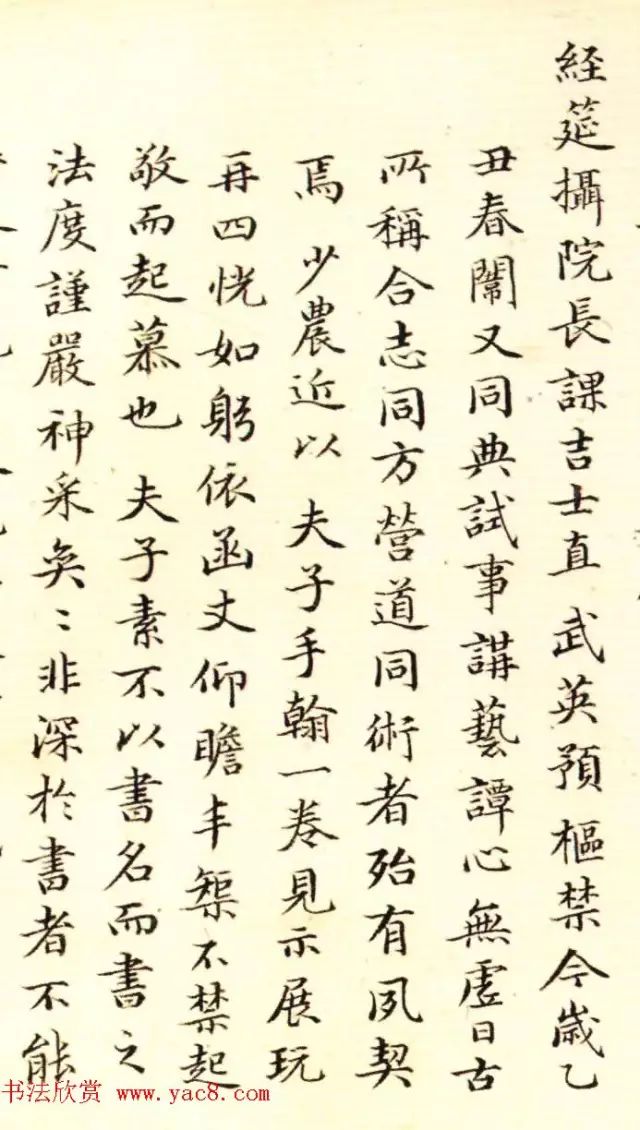 経筵攝院長課吉士直武英預樞禁今嵗乙
丑春闈又同典試事講藝譚心無虛日古
所稱合志同方營道同術者殆有夙契
焉 少農近以 夫子手翰一卷見示展玩
再四恍如躬依函丈仰瞻丰榘不禁起
敬而起慕也 夫子素不以書名而書之
法度謹嚴神采奐〻非深於書者不能
书法欣赏 www.yac8.com